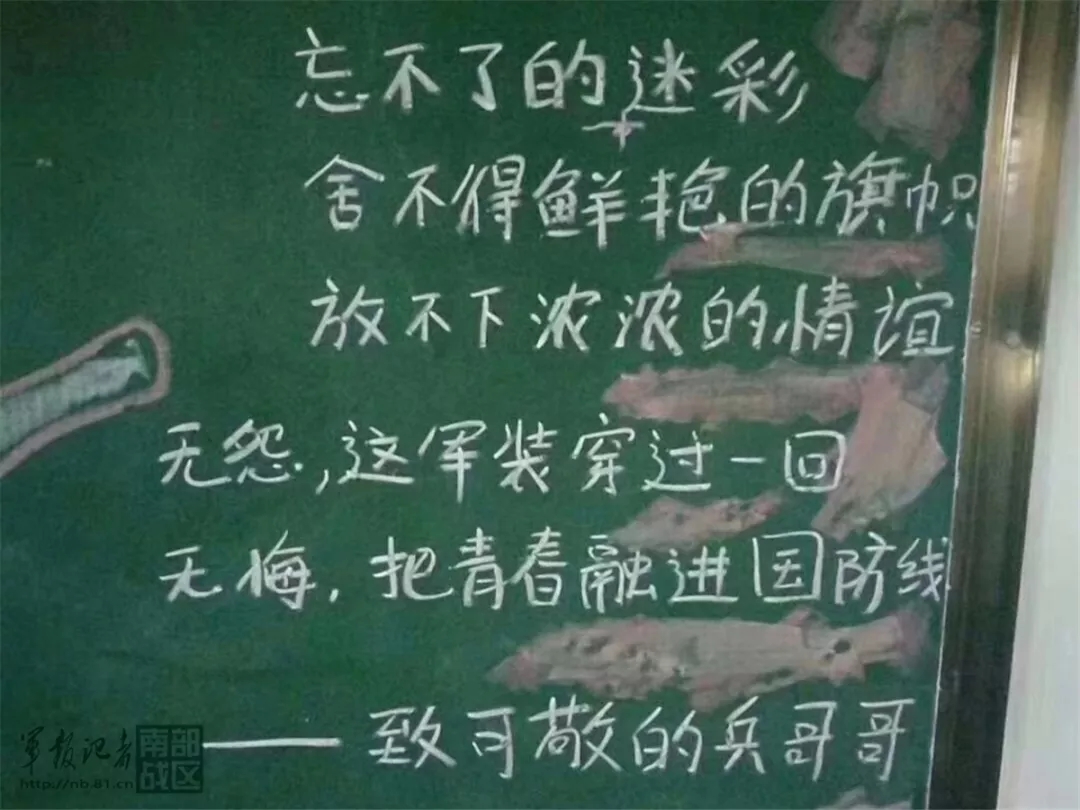 忘不了的迷彩
舍不得鲜艳的旗帜
放不下浓浓的情谊
无怨,这军装穿过一回
无悔.把青春融进国防线
——致可敬的兵哥哥
军报记者 南部战区
http://nb.81.cn